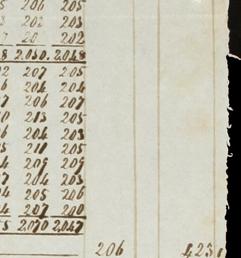 5 206 205
3 202 203
7 20 202
8 2.050. 2.048
2 207 205
6 204 204
7 206 207
0 213 205
6 204 203
5 211 205
4 209 209
7 204 203
4 205 206
4 207 200
5 2,070 2,047
206 423